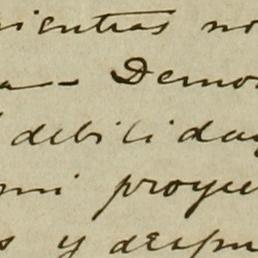 mientras no
a — Demos
debilidad
mi proye
s y despu